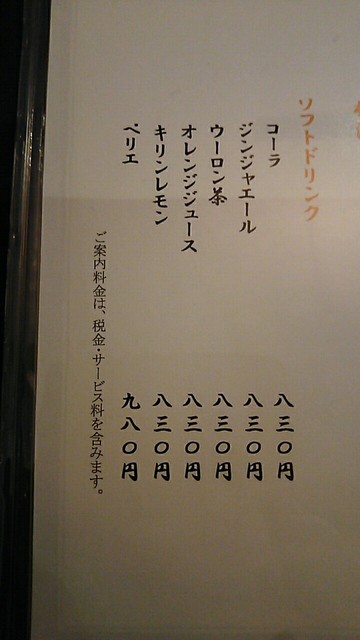 ソフトドリンク
コーラ 八三〇円
ジンジャエール 八三〇円
ウーロン茶 八三〇円
オレンジジュース 八三〇円
キリンレモン 八三〇円
ペリエ 九八〇円
ご案内料金は、税金・サービス料を含みます。